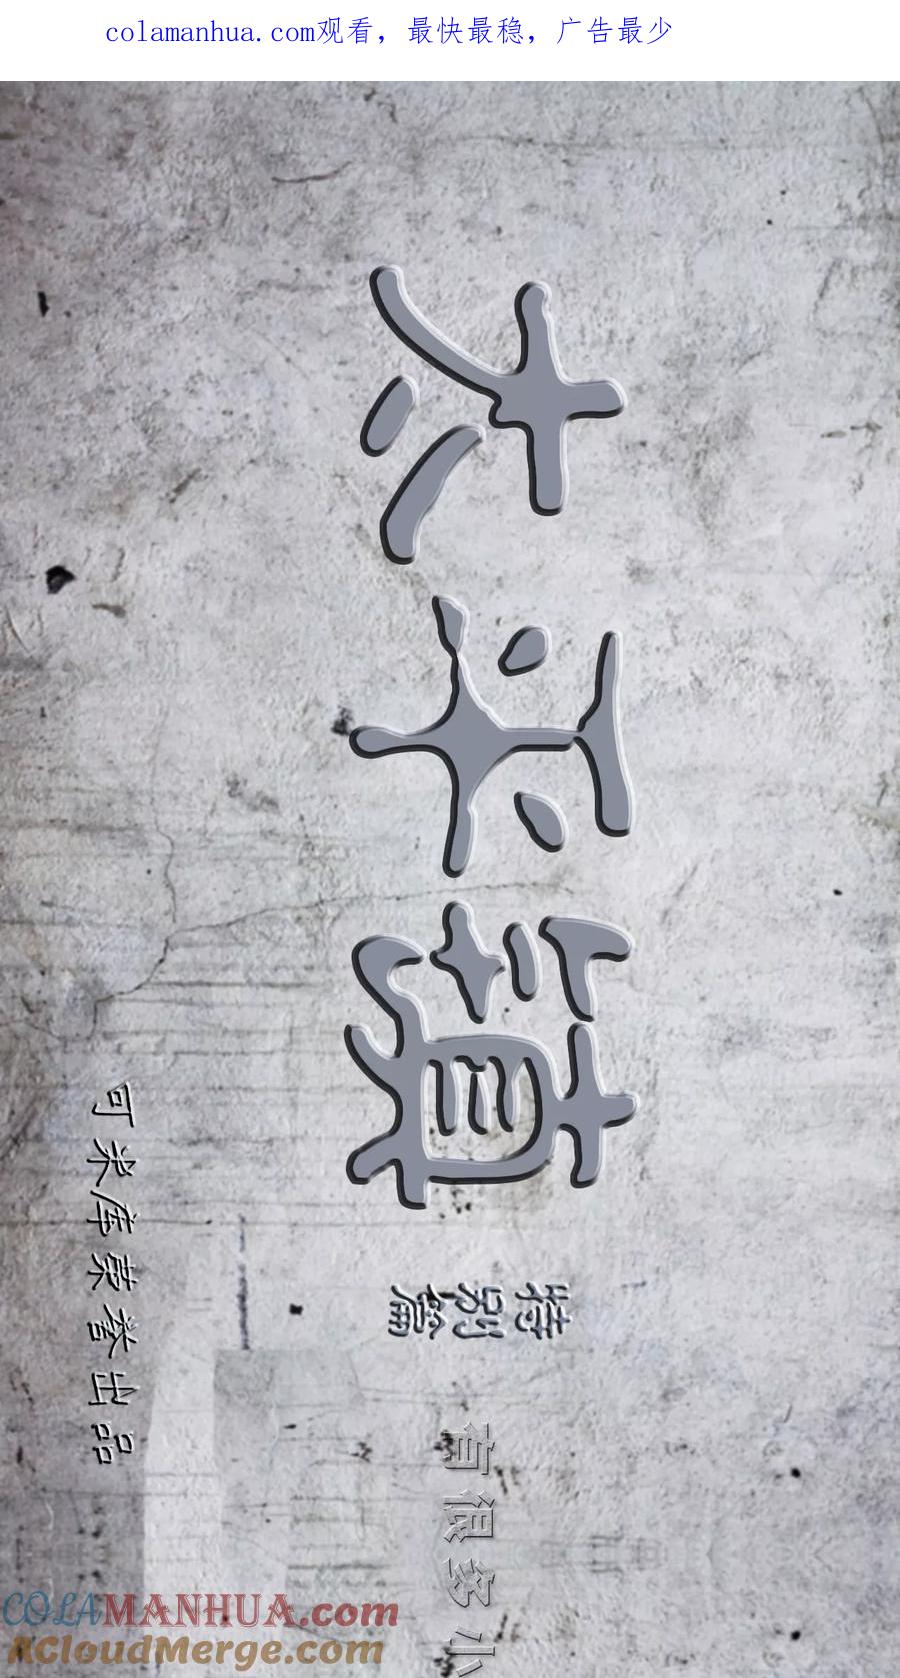 colamanhua.com观看，最快最稳，广告最少
太平镇
特别篇
有很多小
可米库慕誊出品
COLAMANHUA.com
ACloudMerge.com